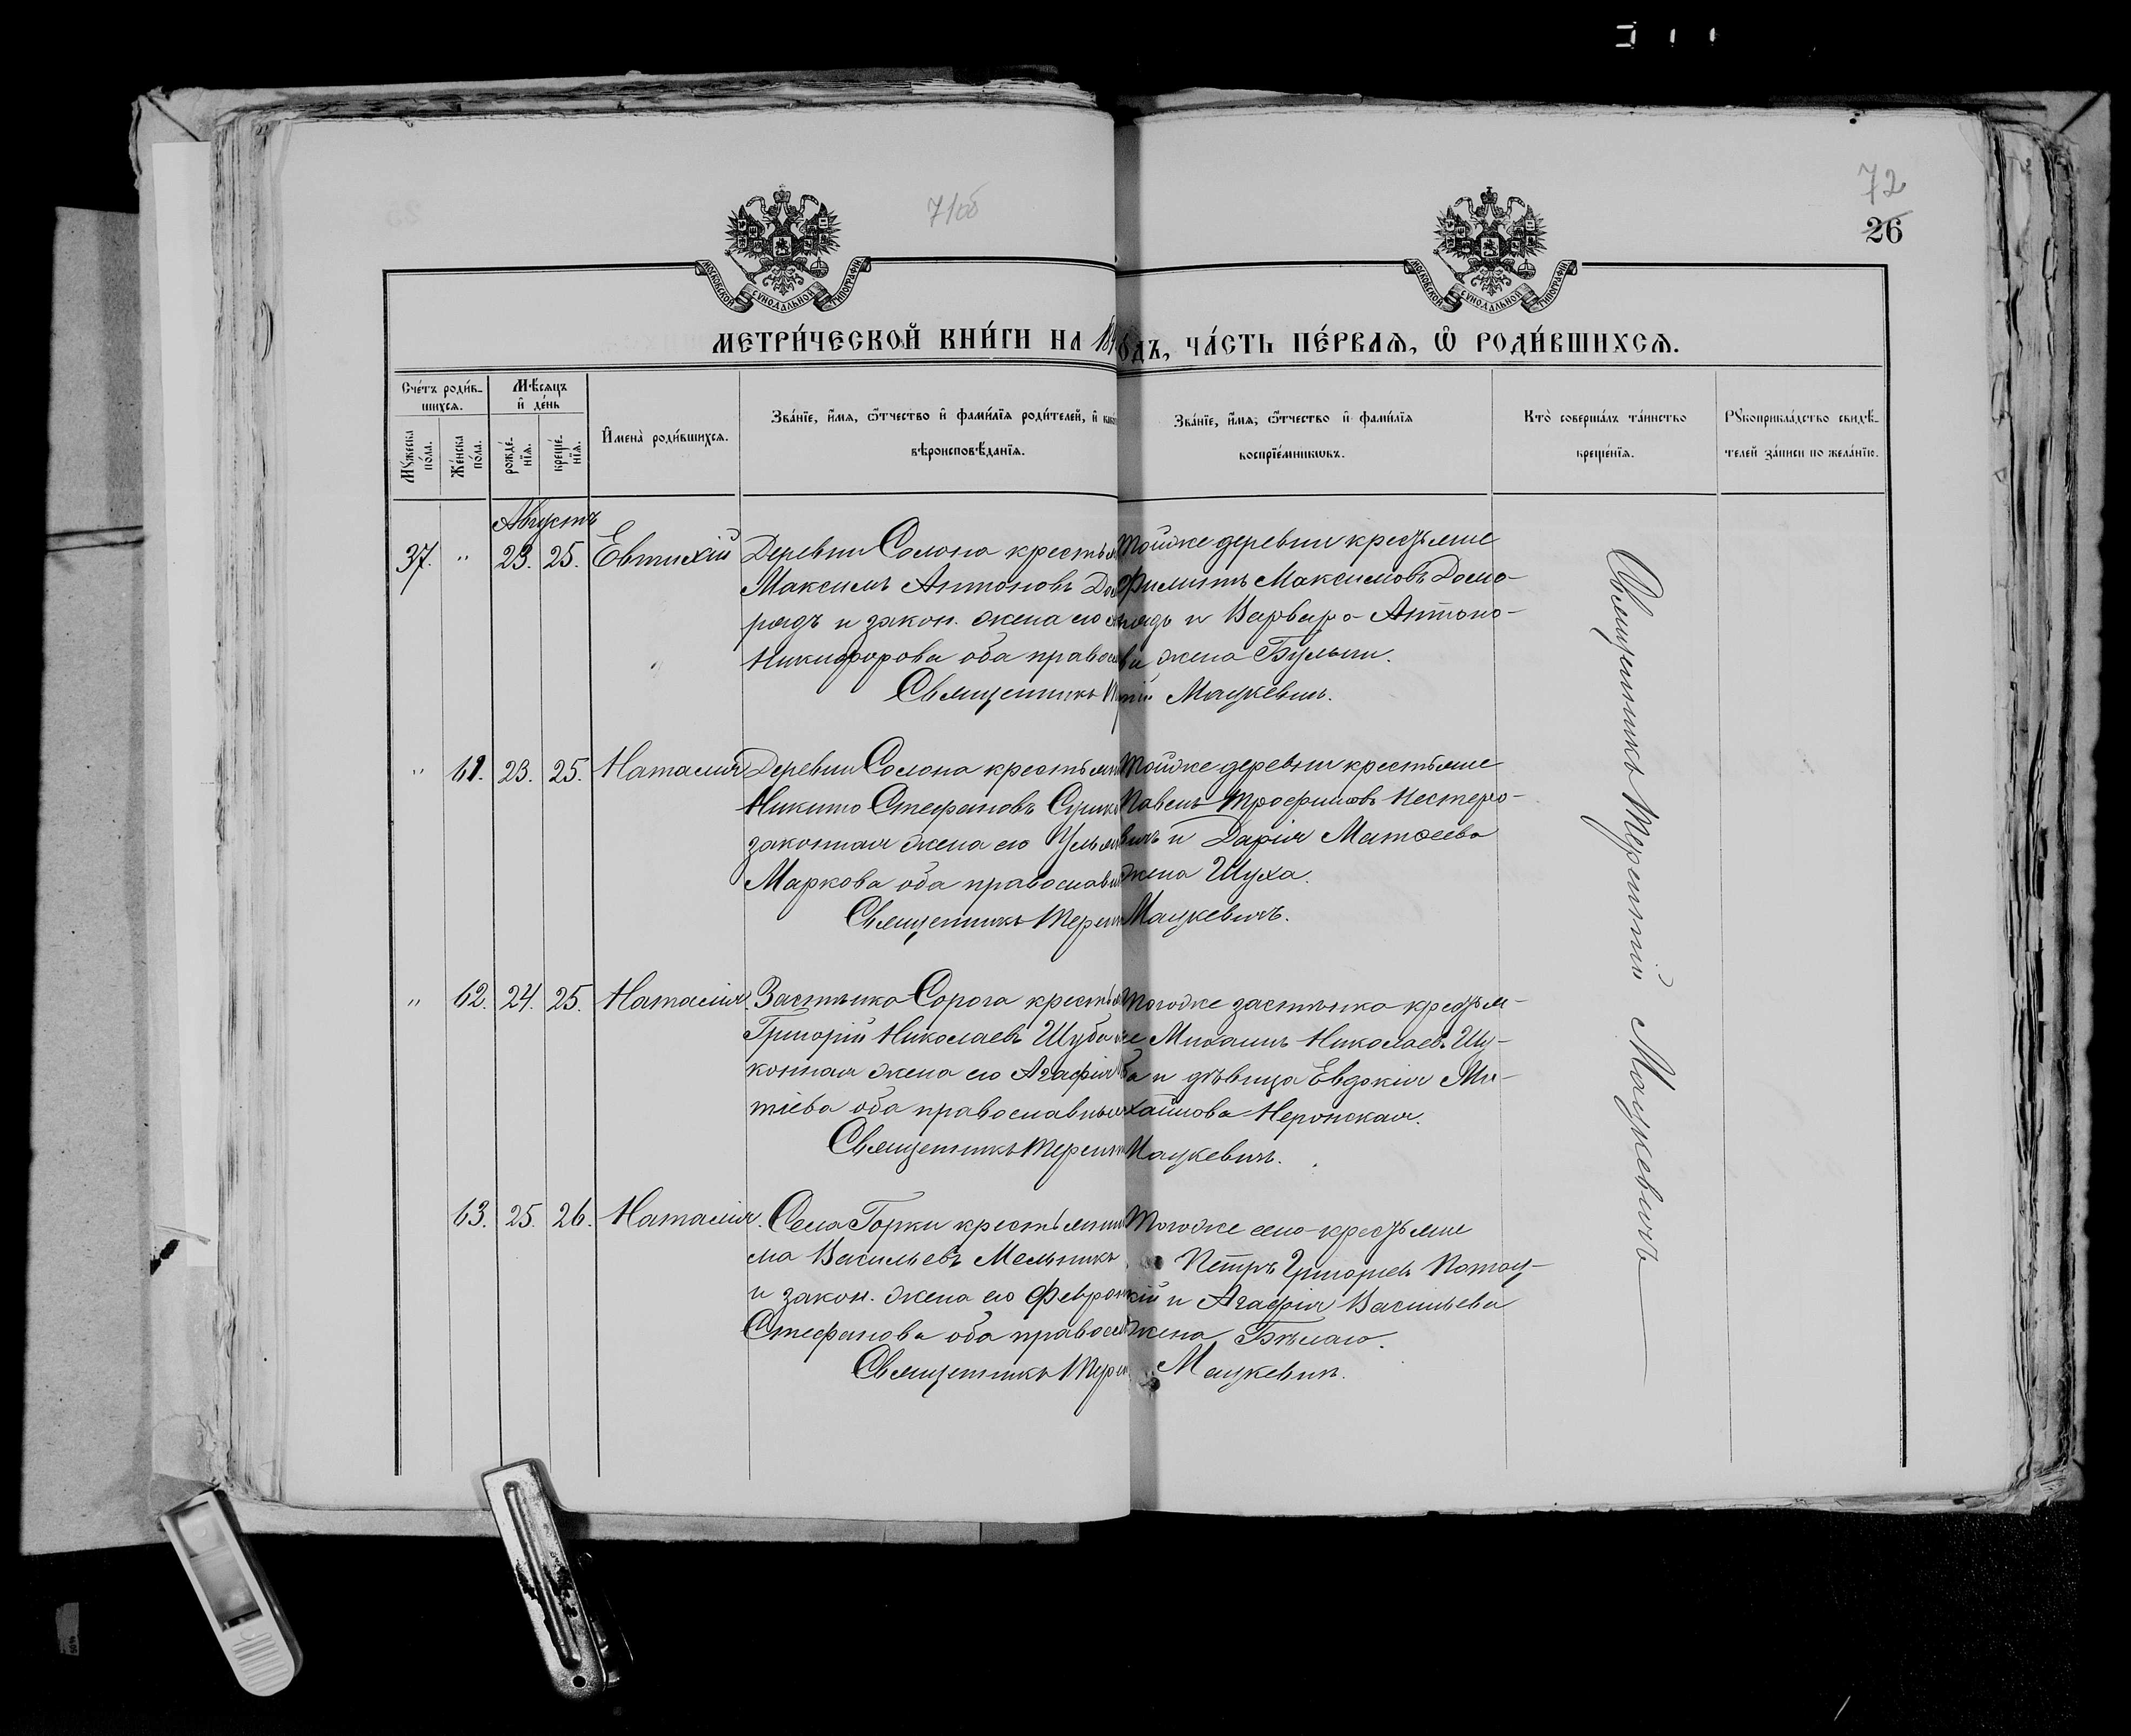 71об
72
26
МОСКОВСКОЙ СѴНОДАЛЬНОЙ ТИПОГРАФІИ
МОСКОВСКОЙ СѴНОДАЛЬНОЙ ТИПОГРАФІИ
МЕТРИ́ЧЕСКОЙ КНИ́ГИ НА 18
ОДЪ, ЧА́СТЬ ПЕ́РВАѦ, Ѽ РОДИ́ВШИХСѦ.
Сче́тъ роди́в-
шихсѧ.
Мꙋ́жеска по́ла.
Же́нска по́ла.
Мѣ́сѧцъ и҆ де́нь
рожде́-
нїѧ.
креще́-
нїѧ.
И҆мена̀ роди́вшихсѧ.
Зва́нїе, и҆́мѧ, ѻ҆́тчество и҆ фами́лїѧ роди́телей, и҆
вѣроисповѣ́данїѧ.
Зва́нїе, и҆́мѧ, ѻ҆́тчество и҆ фами́лїѧ
воспрїе́мникѡвъ.
Кто̀ соверша́лъ та́инство
креще́нїѧ.
Рꙋкоприкла́дство свидѣ́-
телей за́писи по жела́нїю.
Августъ
37. " 23. 25. Евтихій
Деревни Солона крестья
Максимъ Антоновъ До
радъ и закон. жена его
Никифорова оба правос
Священникъ
Тойже деревни крестьяне
Филиппъ Максимовъ Домо-
радъ и Варвара Антоно-
ва жена Булыги.
Мацкевичъ.
" 61. 23. 25. Наталія
Деревни Солона крестьян
Никита Стефановъ
законная жена его Улья
Маркова оба православн
Священникъ Терен
Тойже деревни крестьяне
Павелъ Трофимовъ Нестеро-
вичъ и Дарія Матѳеева
жена Шуха.
Мацкевичъ.
" 62. 24. 25. Наталія.
Застѣнка Сорога крестья
Григорій Николаевъ Шуба
конная жена его Агафія
тіева оба православныя
Священникъ Терент
Тогоже застѣнка крестья-
не Михаилъ Николаевъ Шу-
ба и дѣвица Евдокія Ми-
хайлова Неронская.
Мацкевичъ.
63. 25. 26. Наталія.
Села Горки крестьянин
ма Васильевъ Мельникъ
и закон. жена его Феврон
Стефанова оба правосл
Священникъ Терен
Тогоже села крестьяне
Петръ Григорьевъ Потоц-
кій и Агафія Васильева
жена Бѣлаго.
Мацкевичъ.
Священникъ Терентій Мацкевичъ